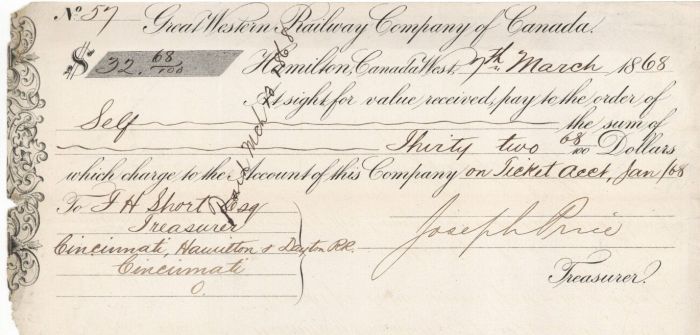 No 57 Great Western Railway Company of Canada.
$ 32. 68/100 Hamilton, Canada West, 7th March 1868
At sight for value received, pay to the order of
Self the sum of
Thirty two 68/100 Dollars
which charge to the Account of this Company on Ticket acct, Jan /68
To F H Short Esq
Treasurer
Cincinnati, Hamilton & Dayton R.R.
Cincinnati
O.
Joseph Price
Treasurer.
Paid Mch 20 1868